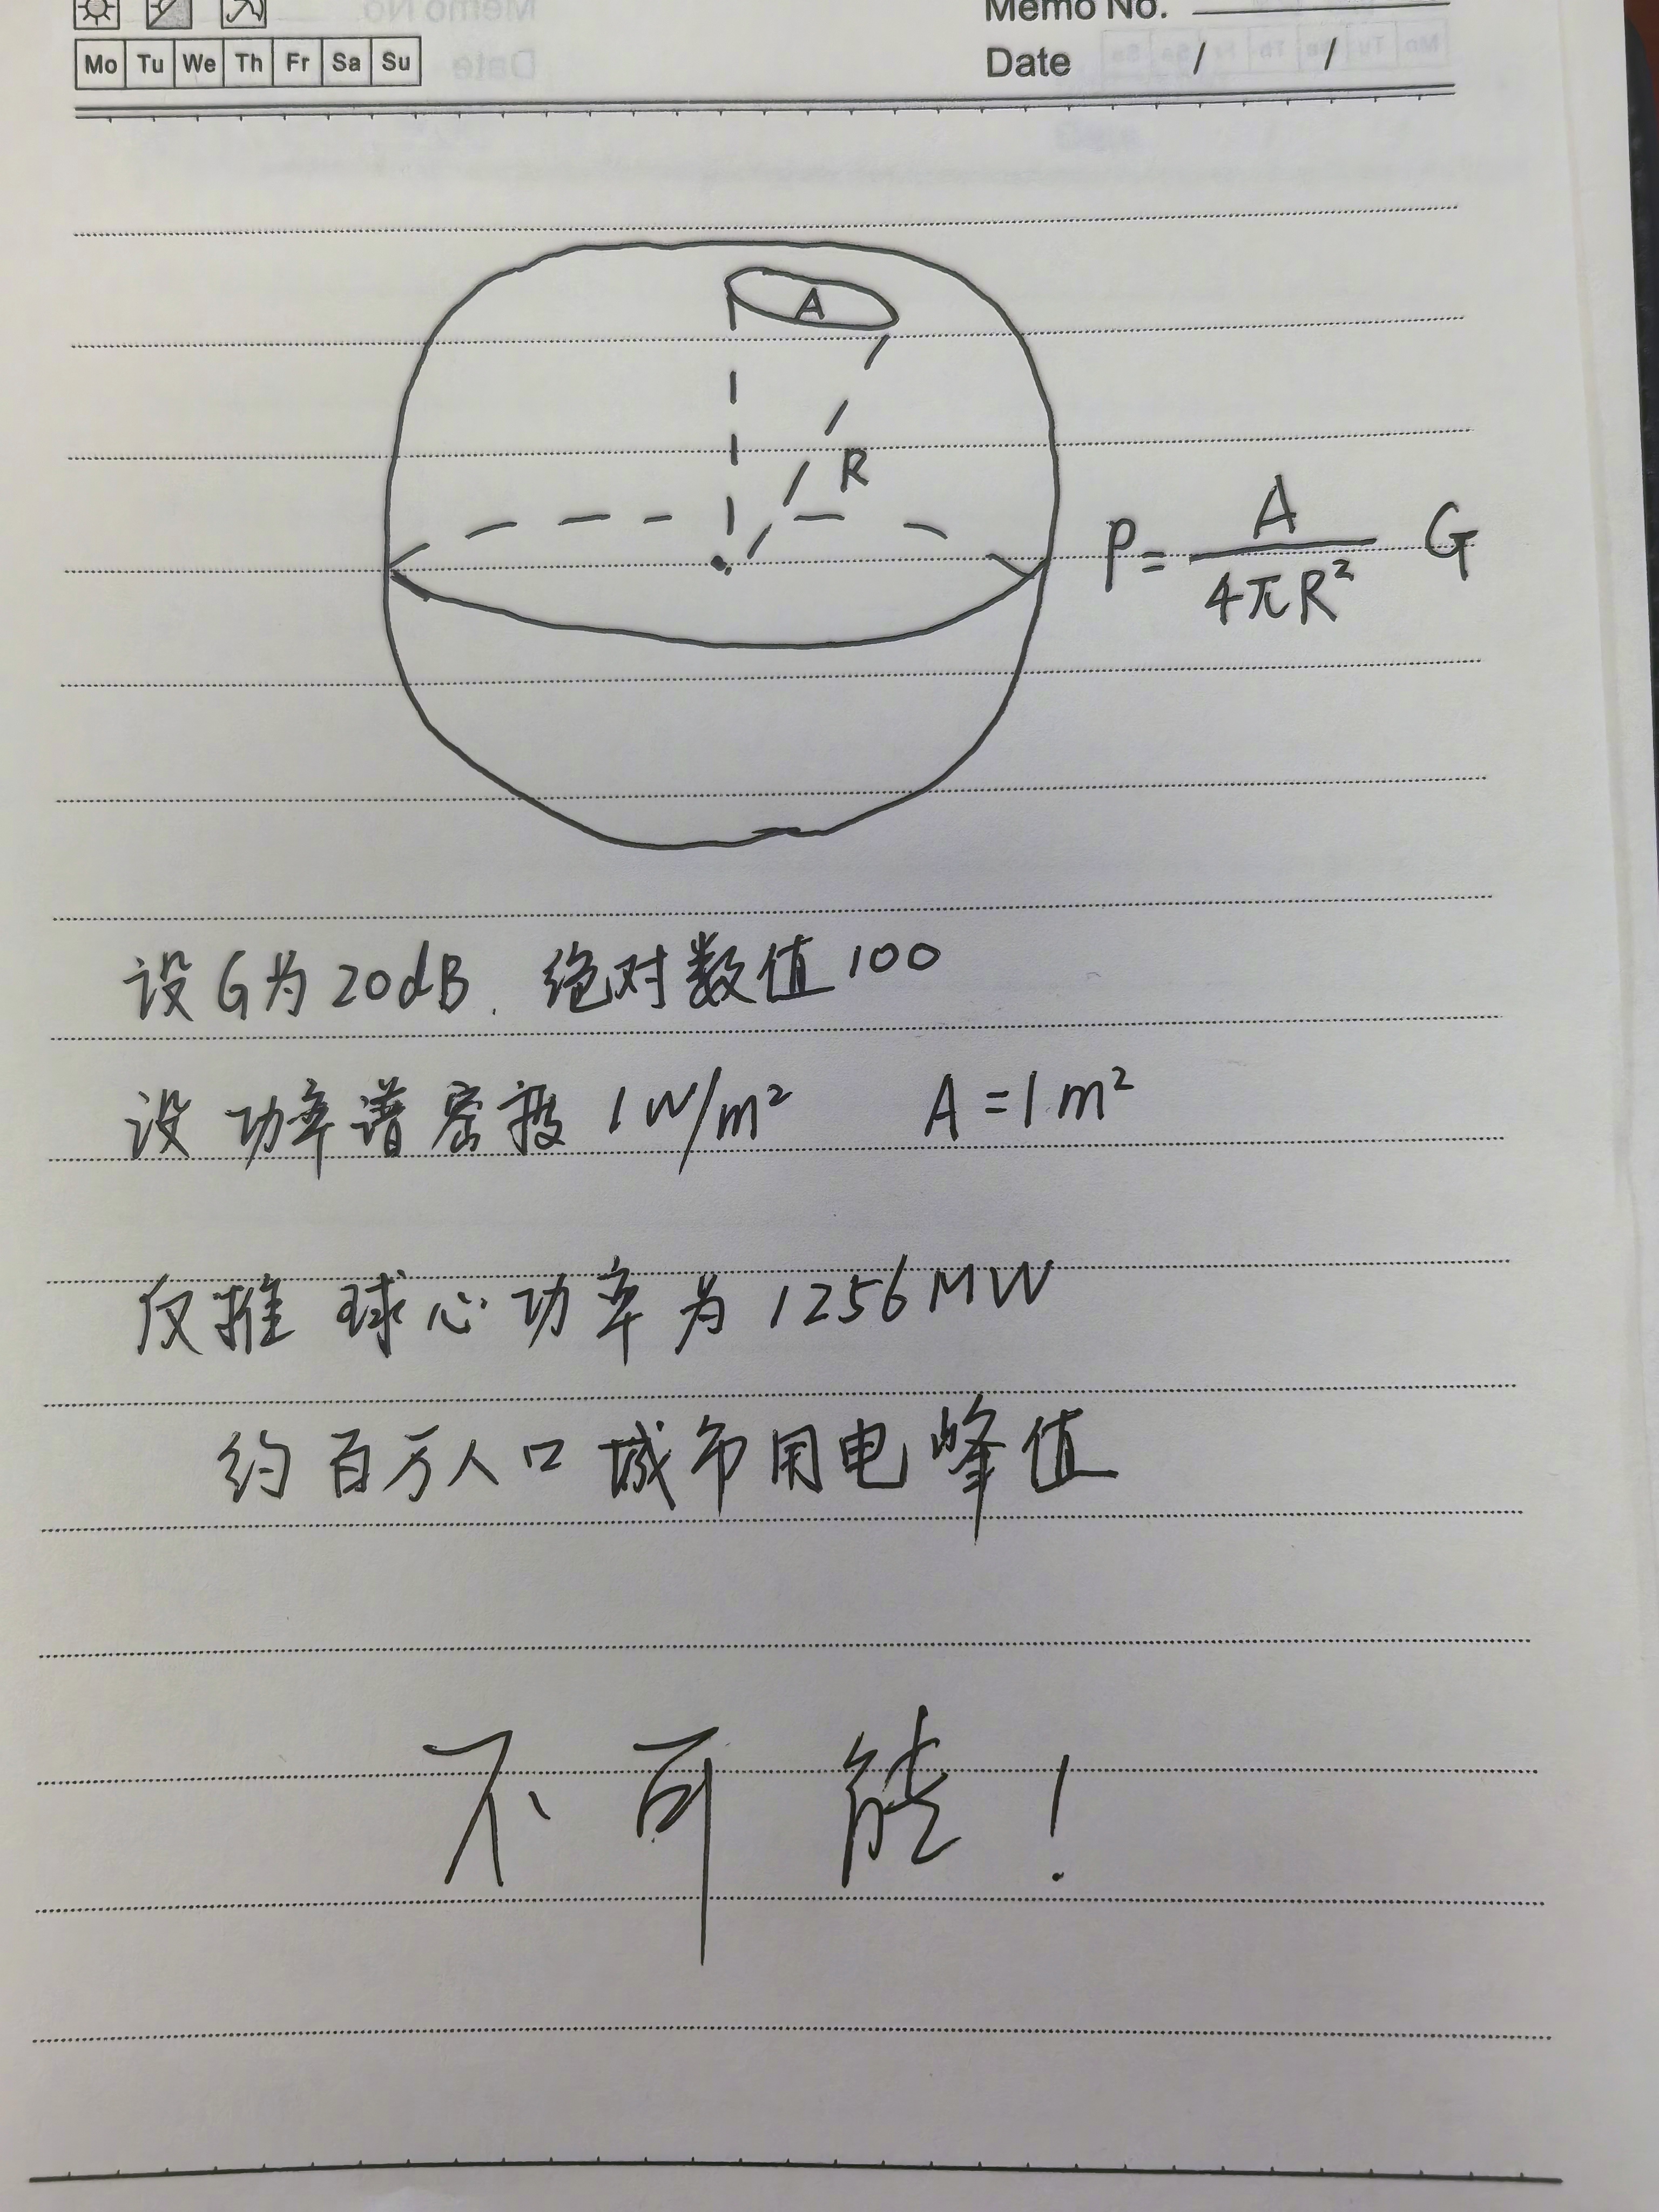 Memo No.
Mo Tu We Th Fr Sa Su
Date / /
A
R
P = A / 4πR² G
设G为20dB. 绝对数值100
设功率谱密度 1W/m² A=1m²
反推球心功率为1256MW
约百万人口城市用电峰值
不可能!